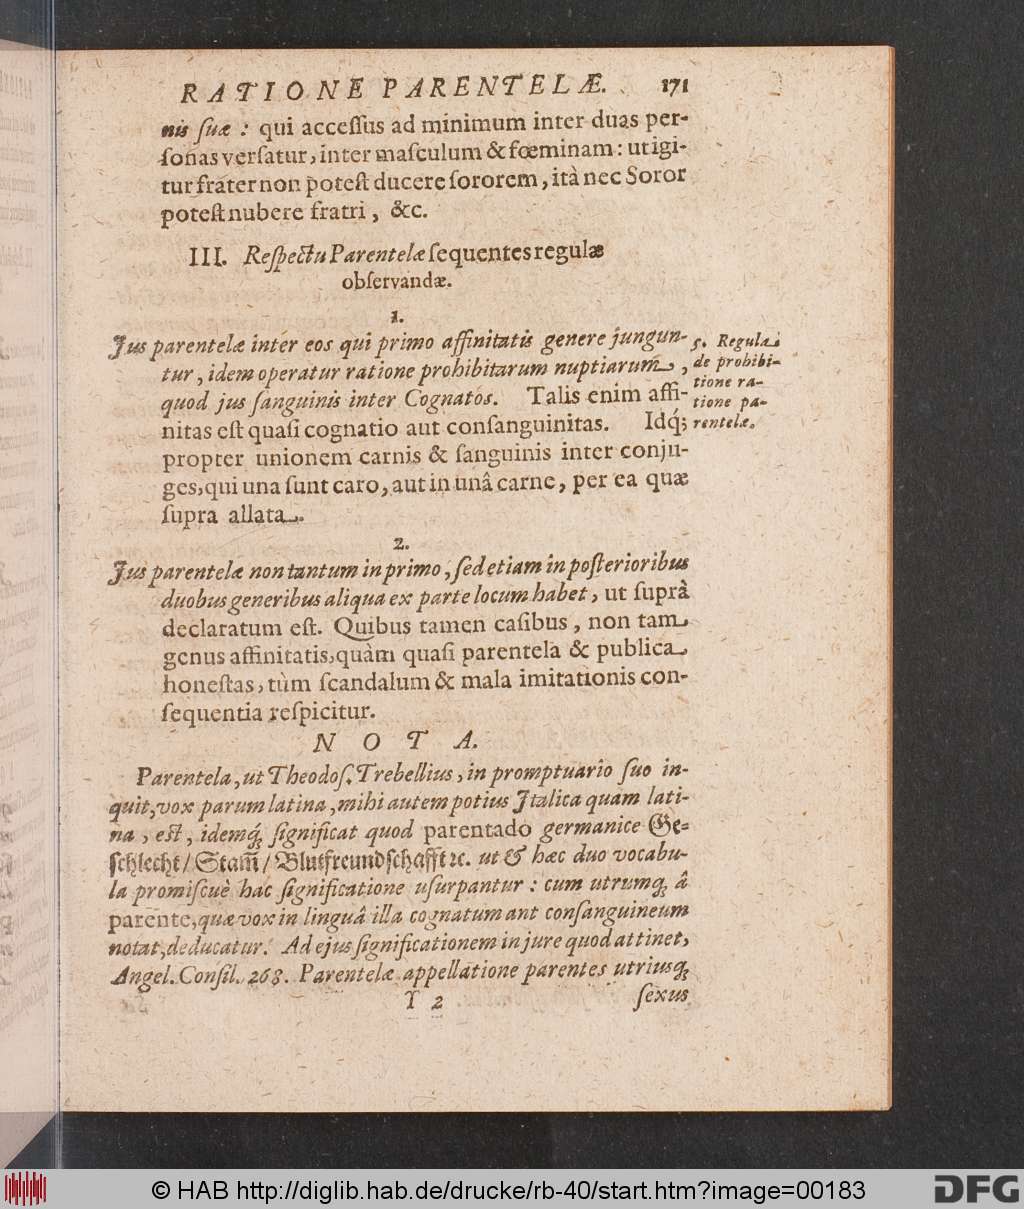 RATIONE PARENTELÆ. 171
nis ſuæ : qui acceſſus ad minimum inter duas per-
ſonas verſatur, inter maſculum & fœminam: ut igi-
tur frater non poteſt ducere ſororem, ità nec Soror
poteſt nubere fratri, &c.
III. Reſpectu Parentelæ ſequentes regulæ
obſervandæ.
1.
Jus parentelæ inter eos qui primo affinitatis genere jungun-
tur, idem operatur ratione prohibitarum nuptiarum,
quod jus ſanguinis inter Cognatos. Talis enim affi-
nitas eſt quaſi cognatio aut conſanguinitas. Idq́;
propter unionem carnis & ſanguinis inter conju-
ges, qui una ſunt caro, aut in unâ carne, per ea quæ
ſupra allata.
5. Regulæ
de prohibi-
tione ra-
tione pa-
rentelæ.
2.
Jus parentelæ non tantum in primo, ſed etiam in poſterioribus
duobus generibus aliqua ex parte locum habet, ut ſuprà
declaratum eſt. Quibus tamen caſibus, non tam
genus affinitatis, quàm quaſi parentela & publica
honeſtas, tùm ſcandalum & mala imitationis con-
ſequentia reſpicitur.
NOTA.
Parentela, ut Theodoſ. Trebellius, in promptuario ſuo in-
quit, vox parum latina, mihi autem potius Italica quam lati-
na, est, idemq́; ſignificat quod parentado germanice Ge=
ſchlecht / Stam̃ / Blutfreundſchafft ꝛc. ut & hæc duo vocabu-
la promiſcuè hac ſignificatione uſurpantur : cum utrumq; â
parente, quæ vox in linguâ illa cognatum ant conſanguineum
notat, deducatur. Ad ejus ſignificationem in jure quod attinet,
Angel. Conſil. 268. Parentelæ appellatione parentes utriusq;
T 2 ſexus
© HAB http://diglib.hab.de/drucke/rb-40/start.htm?image=00183
DFG